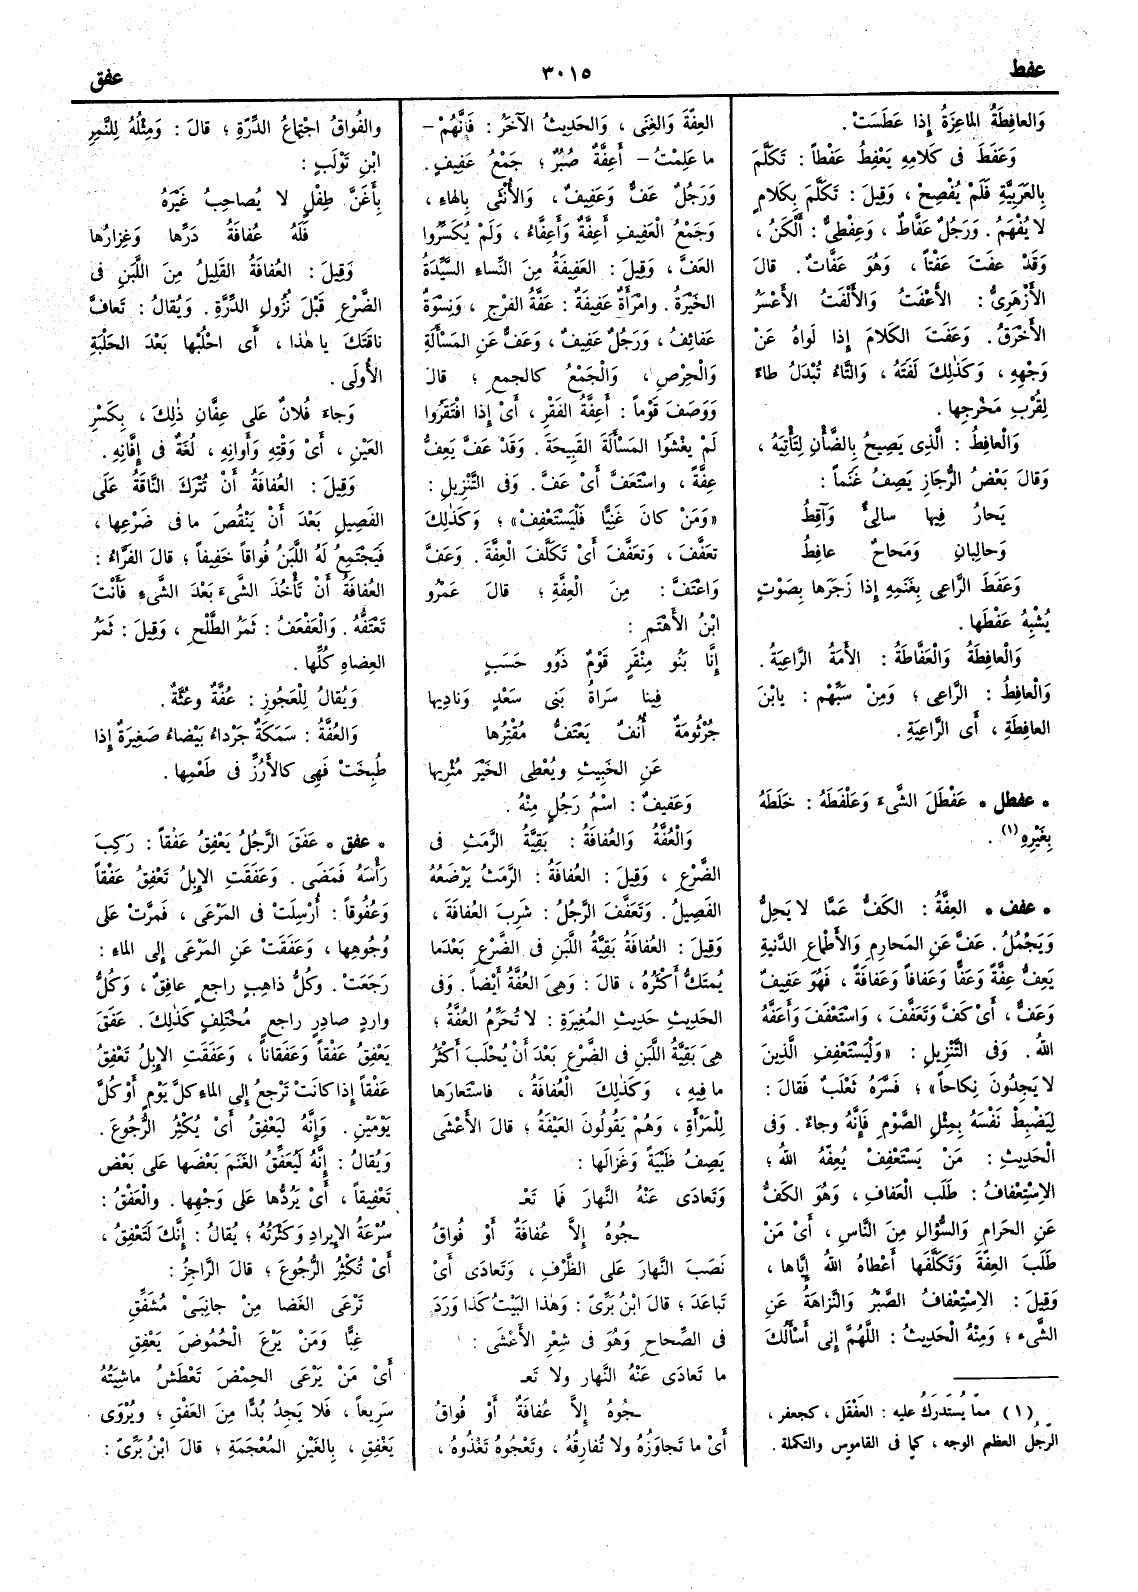 عفط
٣٠١٥
عفق
وَالعافِطَةُ الماعِزَةُ إِذا عَطَسَتْ .
وَعَفَطَ فى كَلامِهِ يَعْفِطُ عَفْطاً : تَكَلَّمَ
بِالعَرَبِيَّةِ فَلَمْ يُفْصِحْ ، وَقِيلَ : تَكَلَّمَ بِكَلامٍ
لا يُفْهَمُ . وَرَجُلٌ عَفَّاطٌ ، وَعِفْطِىٌّ : أَلْكَنُ ،
وَقَدْ عفَتَ عَفْتاً ، وَهُوَ عَفَّاتٌ . قالَ
الأَزْهَرِىُّ : الأَعْفَتُ وَالأَلْفَتُ الأَعْسَرُ
الأَخْرَقُ . وَعَفَتَ الكَلامَ إِذا لَواهُ عَنْ
وَجْهِهِ ، وَكَذٰلِكَ لَفَتَهُ ، وَالتَّاءُ تُبْدَلُ طاءً
لِقُرْبِ مَخْرَجِها .
وَالْعافِطُ : الَّذِى يَصِيحُ بِالضَّأْنِ لِتَأْتِيَهُ ،
وَقالَ بَعْضُ الرُّجَّازِ يَصِفُ غَنَماً :
يَحارُ فِيها سالِئٌ وَآقِطُ
وَحالِبانِ وَمَحاحٌ عافِطُ
وَعَفَطَ الرَّاعِى بِغَنَمِهِ إِذا زَجَرَها بِصَوْتٍ
يُشْبِهُ عَفْطَها .
وَالْعافِطَةُ وَالْعَفَّاطَةُ : الأَمَةُ الرَّاعِيَةُ .
وَالْعافِطُ : الرَّاعِى ؛ وَمِنْ سَبِّهْم : يابْنَ
العافِطَةِ ، أَى الرَّاعِيَةِ .
• عفطل • عَفْطَلَ الشَّىْءَ وَعَلْفَطَهُ : خَلَطَهُ
بِغَيْرِهِ (١) .
• عفف • العِفَّةُ : الكَفُّ عَمَّا لا يَحِلُّ
وَيَجْمُلُ . عَفَّ عَنِ المَحارِمِ وَالأَطْماعِ الدَّنِيَةِ
يَعِفُّ عِفَّةً وَعَفًّا وَعَفافاً وَعَفافَةً ، فَهُوَ عَفِيفٌ
وَعَفٌّ ، أَىْ كَفَّ وَتَعَفَّفَ ، وَاسْتَعْفَفَ وَأَعَفَّهُ
اللهُ . وَفى التَّنْزِيلِ : «وَلْيَسْتَعْفِفِ الَّذِينَ
لا يَجِدُونَ نِكاحاً» ؛ فَسَّرَهُ ثَعْلَبٌ فَقالَ :
لِيَضْبِطْ نَفْسَهُ بِمِثْلِ الصَّوْمِ فَإِنَّهُ وِجاءٌ . وَفى
الْحَدِيثِ : مَنْ يَسْتَعْفِفْ يُعِفَّهُ اللهُ ؛
الاِسْتِعْفافُ : طَلَب الْعَفافِ ، وَهُوَ الكَفُّ
عَنِ الحَرامِ وَالسُّؤَالِ مِنَ النَّاسِ ، أَىْ مَنْ
طَلَبَ العِفَّةَ وَتَكَلَّفَها أَعْطاهُ اللهُ إِيَّاها ،
وَقِيلَ : الاِسْتِعْفافُ الصَّبْرُ وَالنَّزاهَةُ عَنِ
الشَّىْءِ ؛ وَمِنْهُ الْحَدِيثُ : اللَّهُمَّ إِنى أَسْأَلُكَ
(١) ممّا يُستَدرَكُ عليه : العَفْقَل ، كجعفر ،
الرّجُلُ العظيم الوجه ، كما فى القاموس والتكملة .
العِفَّةَ وَالغِنَى ، وَالحَدِيثُ الآخَرُ : فَإِنَّهُمْ –
ما عَلِمْتُ – أَعِفَّةٌ صُبُرٌ ؛ جَمْعُ عَفِيفٍ .
وَرَجُلٌ عَفٌّ وَعَفِيفٌ ، وَالأُنْثَى بِالهاءِ ،
وَجَمْعُ العَفِيفِ أَعِفَّةٌ وَأَعِفَّاءُ ، وَلَمْ يُكَسِّرُوا
العَفَّ ، وَقِيلَ : العَفِيفَةُ مِنَ النِّساءِ السَّيِّدَةُ
الخَيِّرَةُ . وامْرَأَةٌ عَفِيفَةٌ : عَفَّةُ الفَرْجِ ، وَنِسْوَةٌ
عَفائِفُ ، وَرَجُلٌ عَفِيفٌ ، وَعَفٌّ عَنِ المَسْأَلَةِ
وَالْحِرْصِ ، وَالْجَمْعُ كالجمعِ ؛ قالَ
وَوَصَفَ قَوْماً : أَعِفَّةُ الفَقْرِ ، أَىْ إِذا افْتَقَرُوا
لَمْ يَغْشَوُا المَسْأَلَةَ القَبِيحَةَ . وَقَدْ عَفَّ يَعِفُّ
عِفَّةً ، واسْتَعَفَّ أَىْ عَفَّ . وَفى التَّنْزِيلِ :
«وَمَنْ كانَ غَنِيًّا فَلْيَسْتَعْفِفْ» ؛ وَكَذٰلِكَ
تَعَفَّفَ ، وَتَعَفَّفَ أَىْ تَكَلَّفَ الْعِفَّةَ . وَعَفَّ
وَاعْتَفَّ : مِنَ الْعِفَّةِ ؛ قالَ عَمْرُو
ابْنُ الأَهْتَمِ :
إِنَّا بَنُو مِنْقَرٍ قَوْمٌ ذَوُو حَسَبٍ
فِينا سَراةُ بَنِى سَعْدٍ وَنادِيها
جُرْثُومَةٌ أُنُفٌ يَعْتَفُّ مُقْتِرُها
عَنِ الخَبِيثِ ويُعْطِى الخَيْرَ مُثْرِيها
وَعَفِيفٌ : اسْمُ رَجُلٍ مِنْهُ .
وَالْعُفَّةُ وَالعُفافَةُ : بَقِيَّةُ الرَّمَثِ فى
الضَّرْعِ ، وَقِيلَ : العُفافَةُ : الرَّمَثُ يَرْضَعُهُ
الفَصِيلُ . وَتَعَفَّفَ الرَّجُلُ : شَرِبَ العُفافَةَ ،
وَقِيلَ : العُفافَةُ بَقِيَّةُ اللَّبَنِ فى الضَّرْعِ بَعْدَما
يُمتَكُّ أَكْثَرُهُ ، قالَ : وَهِىَ العُفَّةُ أَيْضاً . وَفى
الحَدِيثِ حَدِيثِ المُغِيرَةِ : لا تُحَرِّمُ العُفَّةُ ؛
هِىَ بَقِيَّةُ اللَّبَنِ فى الضَّرْعِ بَعْدَ أَنْ يُحْلَبَ أَكْثَرُ
ما فِيهِ ، وَكَذٰلِكَ الْعُفافَةُ ، فاسْتَعارَها
لِلْمَرْأَةِ ، وَهُمْ يَقُولُونَ العَيْفَةُ ؛ قالَ الأَعْشَى
يَصِفُ ظَبْيَةً وَغَزالَها :
وَتَعادَى عَنْهُ النَّهارَ فَما تَعْـ
ـجُوهُ إِلاَّ عُفافَةٌ أَوْ فُواقُ
نَصَبَ النَّهارَ عَلَى الظَّرْفِ ، وَتَعادَى أَىْ
تَباعَدَ ؛ قالَ ابْنُ بَرِّىّ : وَهٰذا البَيْتُ كَذا وَرَدَ
فى الصِّحاحِ وَهُوَ فى شِعْرِ الأَعْشَى :
ما تَعادَى عَنْهُ النَّهارَ ولا تَعـْ
ـجُوهُ إِلاَّ عُفافَةٌ أَوْ فُواقُ
أَىْ ما تَجاوَزُهُ ولا تُفارِقُهُ ، وَتَعْجُوهُ تَغْذُوهُ ،
والفُواقُ اجْتِماعُ الدِّرَّةِ ؛ قالَ : وَمِثْلُهُ لِلنَّمِرِ
ابْنِ تَوْلَبٍ :
بِأَغَنَّ طِفْلٍ لا يُصاحِبُ غَيْرَهُ
فَلَهُ عُفافَةُ دَرِّها وَغِزارُها
وَقِيلَ : العُفافَةُ القَلِيلُ مِنَ اللَّبَنِ فى
الضَّرْعِ قَبْلَ نُزُولِ الدِّرَّةِ . وَيُقالُ : تَعافَّ
ناقَتَكَ يا هٰذا ، أَى احْلُبْها بَعْدَ الحَلْبَةِ
الأُولَى .
وَجاءَ فُلانٌ عَلى عِفَّانِ ذٰلِكَ ، بِكَسْرِ
العَيْنِ ، أَىْ وَقْتِهِ وَأَوانِهِ ، لُغَةٌ فى إِفَّانِهِ .
وَقِيلَ : العُفافَةُ أَنْ تُتْرَكَ النَّاقَةُ عَلَى
الفَصِيلِ بَعْدَ أَنْ يَنْقُصَ ما فى ضَرْعِها ،
فَيَجْتَمِعُ لَهُ اللَّبَنُ فُواقاً خَفِيفاً ؛ قالَ الفَرَّاءُ :
العُفافَةُ أَنْ تَأْخُذَ الشَّىْءَ بَعْدَ الشَّىْءِ فَأَنْتَ
تَعْتَفُّهُ . وَالْعَفْعَفُ : ثَمَرُ الطَّلْحِ ، وَقِيلَ : ثَمَرُ
العِضاهِ كُلِّها .
وَيُقالُ لِلْعَجُوزِ : عُفَّةٌ وعُثَّةٌ .
وَالعُفَّةُ : سَمَكَةٌ جَرْداءُ بَيْضاءُ صَغِيرَةٌ إِذا
طُبِخَتْ فَهِى كالأَرُزِّ فى طَعْمِها .
• عفق • عَفَقَ الرَّجُلُ يَعْفِقُ عَفْقاً : رَكِبَ
رَأْسَهُ فَمَضَى . وَعَفَقَتِ الإِبِلُ تَعْفِقُ عَفْقاً
وَعُفُوقاً : أُرْسِلَتْ فى المَرْعَى ، فَمَرَّتْ عَلى
وُجُوهِها ، وَعَفَقَتْ عَنِ المَرْعَى إِلى الماءِ :
رَجَعَتْ . وكُلُّ ذاهِبٍ راجعٍ عافِقٌ ، وَكُلُّ
وارِدٍ صادِرٍ راجعٍ مُخْتَلِفٍ كَذٰلِكَ . عَفَقَ
يَعْفِقُ عَفْقاً وَعَفَقاناً ، وَعَفَقَتِ الإِبِلُ تَعْفِقُ
عَفْقاً إِذا كانَتْ تَرْجعُ إِلى الماءِ كلَّ يَوْمٍ أَوْ كُلَّ
يَوْمَيْنِ . وَإِنَّهُ لَيَعْفِقُ أَىْ يُكْثِرُ الرُّجُوعَ .
وَيُقالُ : إِنَّهُ لَيُعَفِّقُ الغَنَمَ بَعْضَها عَلى بَعْضٍ
تَعْفِيقاً ، أَىْ يَرُدُّها عَلى وَجْهِها . والعَفْقُ :
سُرْعَةُ الإِيرادِ وَكَثْرَتُهُ ؛ يُقالُ : إِنَّكَ لَتَعْفِقُ ،
أَىْ تُكْثِرُ الرُّجُوعَ ؛ قالَ الرَّاجِزُ :
تَرْعَى الغَضا مِنْ جانِبَىْ مُشَفِّقِ
غِبًّا وَمَنْ يَرْعَ الْحُمُوضَ يَعْفِقِ
أَىْ مَنْ يَرْعَى الحِمْضَ تَعْطَشُ ماشِيَتُهُ
سَرِيعاً ، فَلا يَجِدُ بُدًّا مِنَ العَفْقِ ؛ ويُرْوَى
يَغْفِقِ ، بِالغَيْنِ المُعْجَمَةِ ؛ قالَ ابْنُ بَرِّىّ :